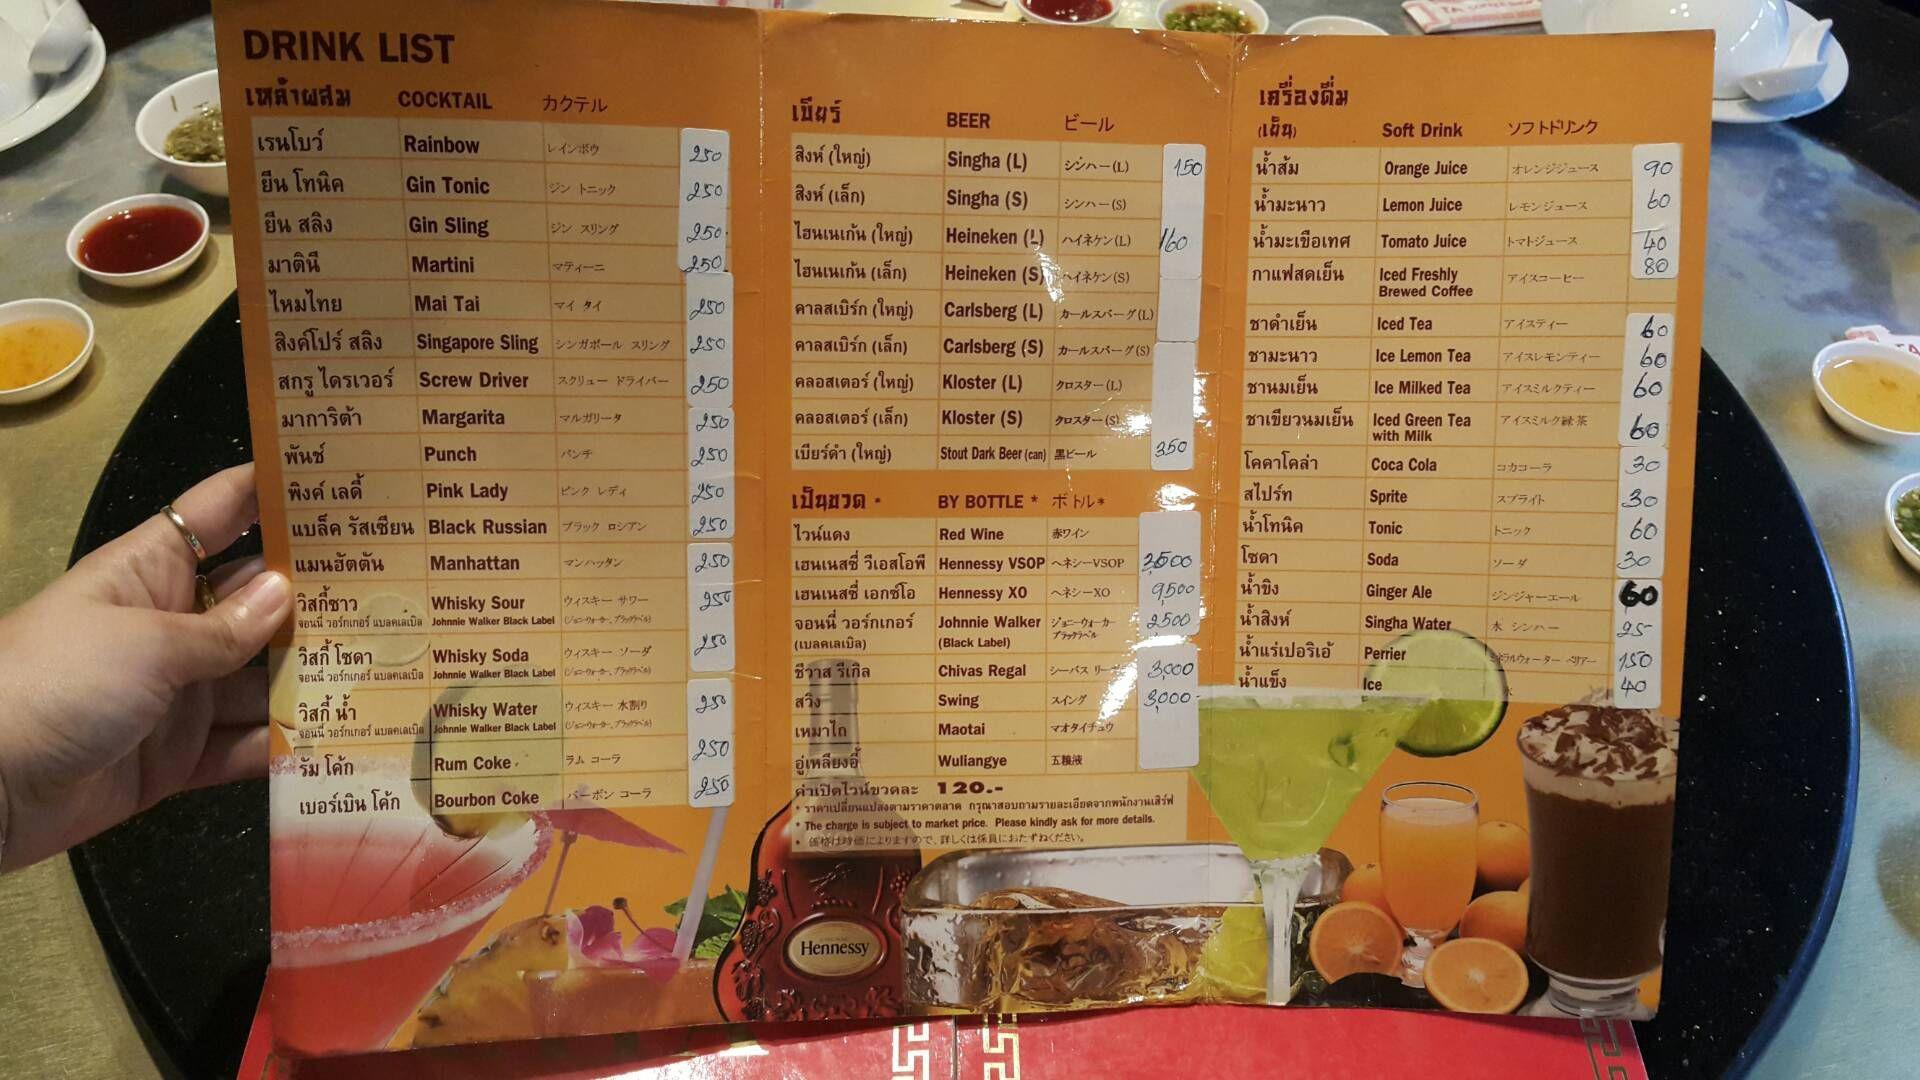 DRINK LIST
เหล้าผสม COCKTAIL カクテル
เรนโบว์ Rainbow レインボウ 250
ยีน โทนิค Gin Tonic ジン トニック 250
ยีน สลิง Gin Sling ジン スリング 250.
มาตินี Martini マティーニ 250.
ไหมไทย Mai Tai マイ タイ 250
สิงค์โปร์ สลิง Singapore Sling シンガポール スリング 250
สกรู ไดรเวอร์ Screw Driver スクリュー ドライバー 250
มาการิต้า Margarita マルガリータ 250
พันช์ Punch パンチ 250
พิงค์ เลดี้ Pink Lady ピンク レディ 250
แบล็ค รัสเซียน Black Russian ブラック ロシアン 250
แมนฮัตตัน Manhattan マンハッタン 250
วิสกี้ซาว Whisky Sour ウィスキー サワー 250
จอนนี่ วอร์กเกอร์ แบลคเลเบิล Johnnie Walker Black Label (ジョニーウォーカー、ブラックラベル)
วิสกี้ โซดา Whisky Soda ウィスキー ソーダ 250
จอนนี่ วอร์กเกอร์ แบลคเลเบิล Johnnie Walker Black Label (ジョニーウォーカー、ブラックラベル)
วิสกี้ น้ำ Whisky Water ウィスキー 水割り 250
จอนนี่ วอร์กเกอร์ แบลคเลเบิล Johnnie Walker Black Label (ジョニーウォーカー、ブラックラベル)
รัม โค้ก Rum Coke ラム コーラ 250
เบอร์เบิน โค้ก Bourbon Coke バーボン コーラ 250
เบียร์ BEER ビール
สิงห์ (ใหญ่) Singha (L) シンハー (L) 150
สิงห์ (เล็ก) Singha (S) シンハー (S)
ไฮนเนเก้น (ใหญ่) Heineken (L) ハイネケン (L) 160
ไฮนเนเก้น (เล็ก) Heineken (S) ハイネケン (S)
คาลสเบิร์ก (ใหญ่) Carlsberg (L) カールスバーグ (L)
คาลสเบิร์ก (เล็ก) Carlsberg (S) カールスバーグ (S)
คลอสเตอร์ (ใหญ่) Kloster (L) クロスター (L)
คลอสเตอร์ (เล็ก) Kloster (S) クロスター (S)
เบียร์ดำ (ใหญ่) Stout Dark Beer (can) 黒ビール 350
เป็นขวด * BY BOTTLE * ボトル*
ไวน์แดง Red Wine 赤ワイン
เฮนเนสซี่ วีเอสโอพี Hennessy VSOP ヘネシーVSOP 3,500
เฮนเนสซี่ เอกซ์โอ Hennessy XO ヘネシーXO 9,500
จอนนี่ วอร์กเกอร์ Johnnie Walker ジョニーウォーカー 2,500
(เบลคเลเบิล) (Black Label) ブラックラベル
ชีวาส รีเกิล Chivas Regal シーバス リー 3,000
สวิง Swing スイング 3,000
เหมาไถ Maotai マオタイチュウ
อู่เหลียงอี้ Wuliangye 五粮液
ค่าเปิดไวน์ขวดละ 120.-
* ราคาเปลี่ยนแปลงตามราคาตลาด กรุณาสอบถามรายละเอียดจากพนักงานเสิร์ฟ
* The charge is subject to market price. Please kindly ask for more details.
* 価格は時価によりますので、詳しくは係員におたずねください。
เครื่องดื่ม
(เย็น) Soft Drink ソフトドリンク
น้ำส้ม Orange Juice オレンジジュース 90
น้ำมะนาว Lemon Juice レモンジュース 60
น้ำมะเขือเทศ Tomato Juice トマトジュース 40
กาแฟสดเย็น Iced Freshly Brewed Coffee アイスコーヒー 80
ชาดำเย็น Iced Tea アイスティー 60
ชามะนาว Ice Lemon Tea アイスレモンティー 60
ชานมเย็น Ice Milked Tea アイスミルクティー 60
ชาเขียวนมเย็น Iced Green Tea with Milk アイスミルク緑茶 60
โคคาโคล่า Coca Cola コカコーラ 30
สไปร์ท Sprite スプライト 30
น้ำโทนิค Tonic トニック 60
โซดา Soda ソーダ 30
น้ำขิง Ginger Ale ジンジャーエール 60
น้ำสิงห์ Singha Water 水 シンハー 25
น้ำแร่เปอริเอ้ Perrier ミネラルウォーター ペリアー 150
น้ำแข็ง Ice 氷 40
Hennessy